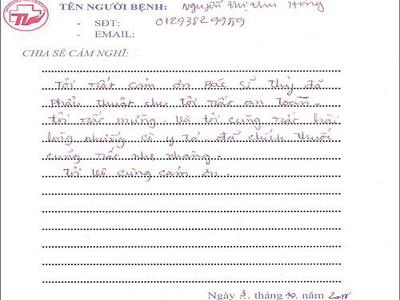 TÊN NGƯỜI BỆNH: Nguyễn Thị Thu Hồng
- SĐT: 01293829959
- EMAIL:
CHIA SẺ CẢM NGHĨ:
Tôi rất cám ơn Bác Sĩ Thủy đã
Phẩu thuật cho tôi rất an toàn.
Tôi rất mừng. Và tôi cũng rất hài
lòng những cô y tá đã chích thuốc
cũng rất nhẹ nhàng.
Tôi vô cùng cám ơn.
Ngày 3, tháng 10, năm